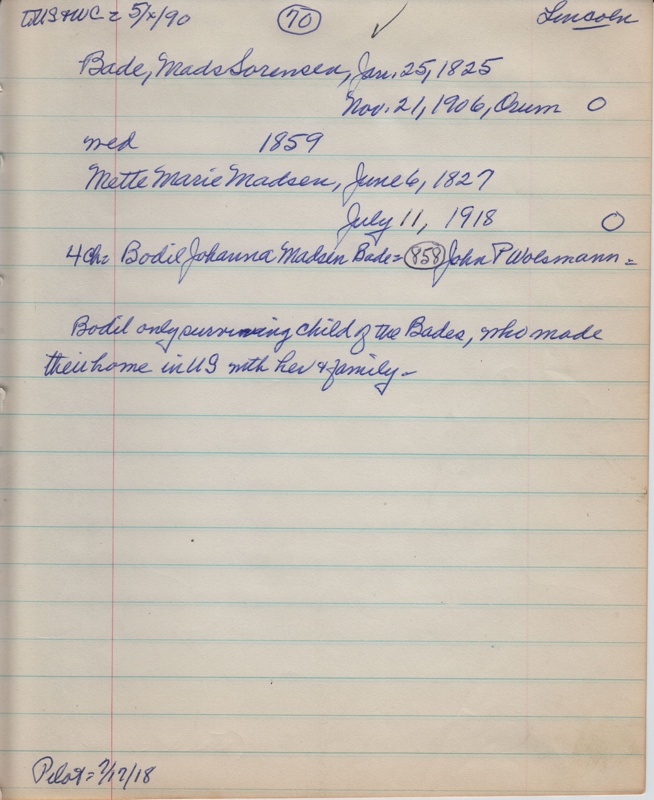 TMS & WC = 5/x/90 70 ✓ Lincoln
Bade, Mads Sorensen, Jan. 25, 1825
Nov. 21, 1906, Orum O
wed 1859
Mette Marie Madsen, June 6, 1827
July 11, 1918 O
4 Ch = Bodil Johanna Madsen Bade = 858 John P Wolsmann =
Bodil only surviving child of the Bades, who made
their home in US with her & family -
Pilot = 7/17/18